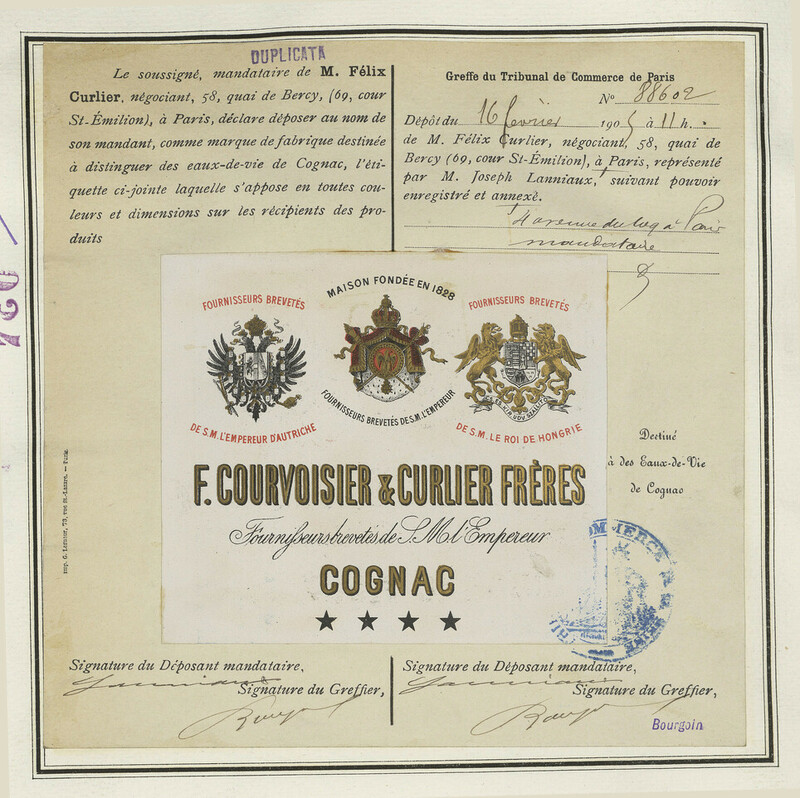 DUPLICATA
Le soussigné, mandataire de M. Félix
Curlier, négociant, 58, quai de Bercy, (69, cour
St-Émilion), à Paris, déclare déposer au nom de
son mandant, comme marque de fabrique destinée
à distinguer des eaux-de-vie de Cognac, l'éti-
quette ci-jointe laquelle s'appose en toutes cou-
leurs et dimensions sur les récipients des pro-
duits
Greffe du Tribunal de Commerce de Paris
No 88602
Dépôt du 16 février 1905 à 11 h.
de M. Félix Curlier, négociant, 58, quai de
Bercy (69, cour St-Émilion), à Paris, représenté
par M. Joseph Lanniaux, suivant pouvoir
enregistré et annexé.
4 avenue du Coq à Paris
mandataire
FOURNISSEURS BREVETÉS
DE S.M. L'EMPEREUR D'AUTRICHE
MAISON FONDÉE EN 1828
FOURNISSEURS BREVETÉS DE S.M. L'EMPEREUR
FOURNISSEURS BREVETÉS
DE S.M. LE ROI DE HONGRIE
F. COURVOISIER & CURLIER FRÈRES
Fournisseurs brevetés de S.M. l'Empereur
COGNAC
Destiné
à des Eaux-de-Vie
de Cognac
COMMERCE
Signature du Déposant mandataire,
Lanniaux
Signature du Greffier,
Signature du Déposant mandataire,
Lanniaux
Signature du Greffier,
Bourgoin